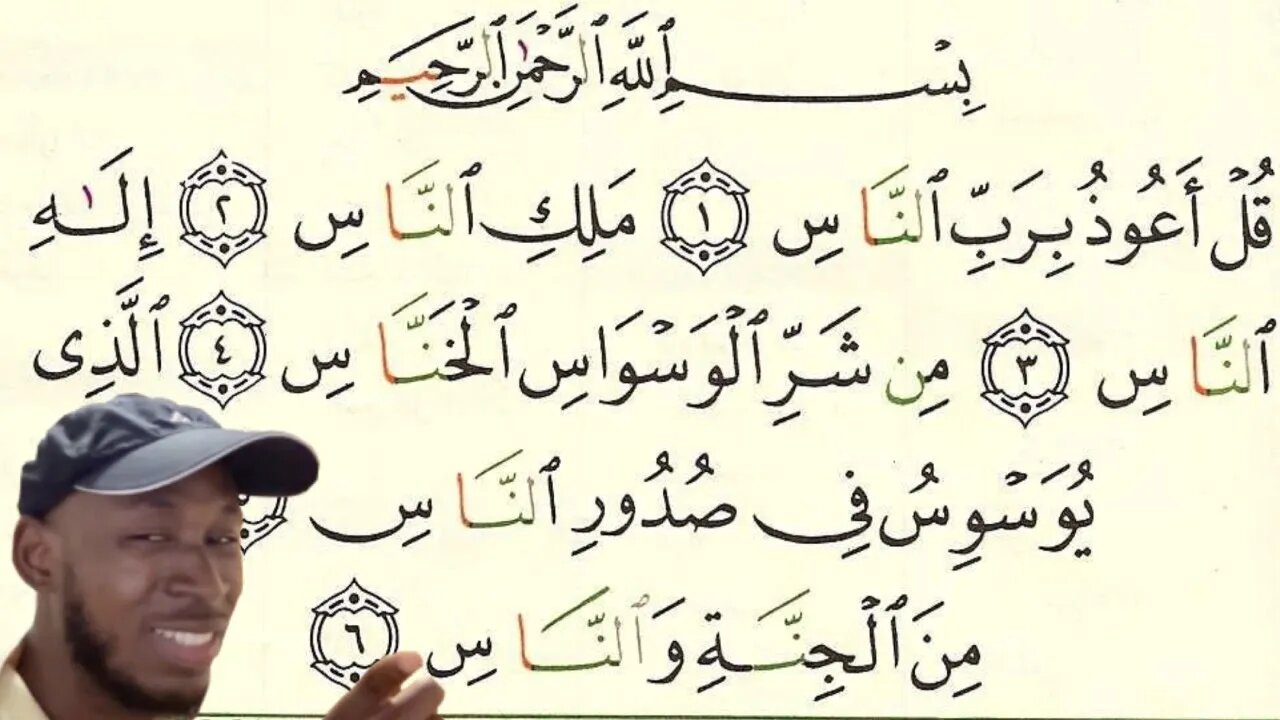 بِسْمِ ٱللَّهِ ٱلرَّحْمَٰنِ ٱلرَّحِيمِ
قُلْ أَعُوذُ بِرَبِّ ٱلنَّاسِ ١ مَلِكِ ٱلنَّاسِ ٢ إِلَٰهِ
ٱلنَّاسِ ٣ مِن شَرِّ ٱلْوَسْوَاسِ ٱلْخَنَّاسِ ٤ ٱلَّذِى
يُوَسْوِسُ فِى صُدُورِ ٱلنَّاسِ
مِنَ ٱلْجِنَّةِ وَٱلنَّاسِ ٦